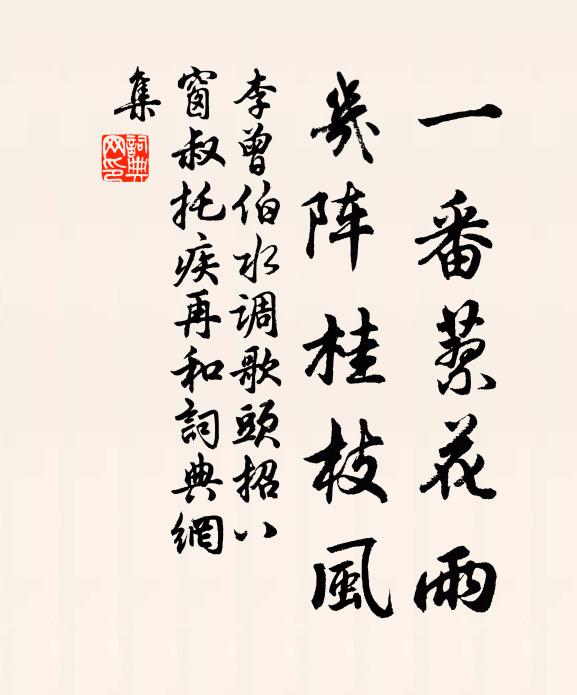 一番花雨
幾阵桂枝風
李曾伯水调歌頭招八
窗叔托疾再和詞典網
集
詞典
网印